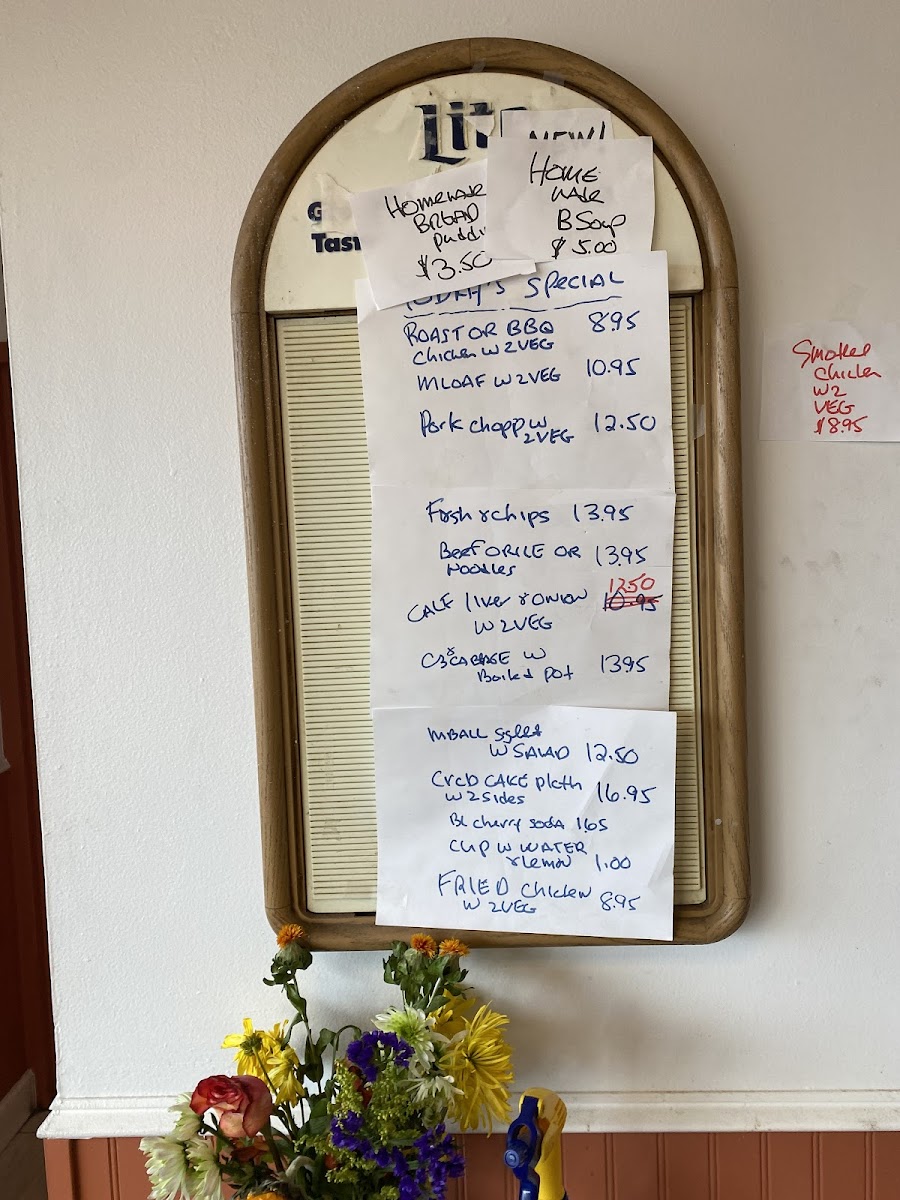 Lite
NEW!
HOMEMADE
BREAD
Puddi
$3.50
HOME
MADE
B Soup
$5.00
G
Tas
TODAY'S SPECIAL
ROAST OR BBQ 8.95
Chicken W 2 VEG
MLOAF W 2 VEG 10.95
Pork chopp W 12.50
2 VEG
Fish & chips 13.95
Beef O RICE OR 13.95
NOODLES
12.50
CALF liver & ONION 10.95
W 2 VEG
CB & CABAGE W 13.95
Boiled pot
MBALL
W SALAD 12.50
CrcD CAKE platt 16.95
W 2 Sides
BL cherry soda 1.65
CUP W WATER
& lemon 1.00
FRIED chicken 8.95
W 2 VEG
Smoked
chicken
W 2
VEG
$8.95